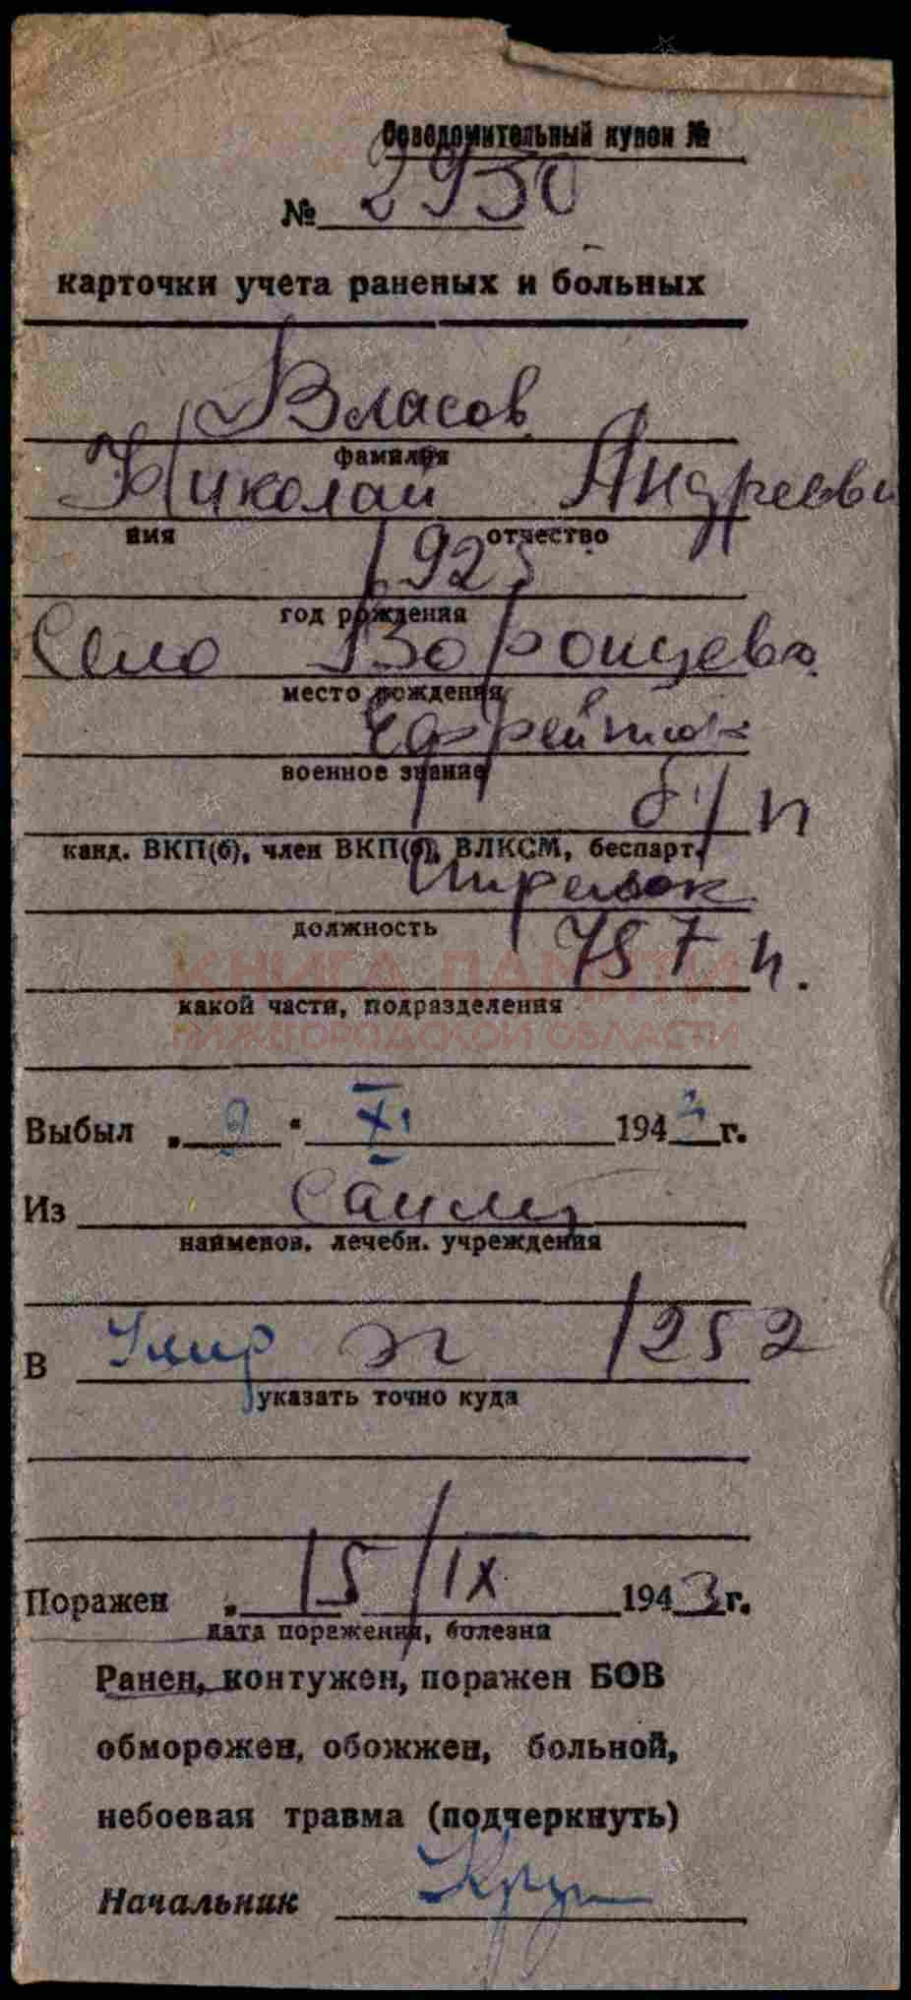 Осведомительный купон №
№ 2950
карточки учета раненых и больных
Власов
фамилия
Николай Андреевич
имя отчество
1925
год рождения
Село Воронцево
место рождения
Ефрейтор
военное звание
б/п
канд. ВКП(б), член ВКП(б), ВЛКСМ, беспарт.
Стрелок
должность
757 п.
КНИГА ПАМЯТИ
какой части, подразделения
НИЖЕГОРОДСКОЙ ОБЛАСТИ
Выбыл „ 9 " XI 1943 г.
Из
наименов. лечебн. учреждения
В Умер эг 1252
указать точно куда
Поражен „ 15/IX 1943 г.
дата поражения, болезни
Ранен, контужен, поражен БОВ
обморожен, обожжен, больной,
небоевая травма (подчеркнуть)
Начальник